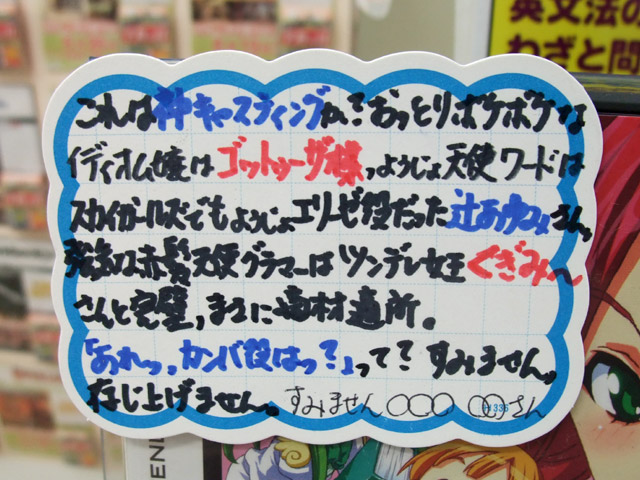 英文法の
わざと問
これは神キャスティングかっ?おっとりボケボケな
イディオム嬢はゴットゥーザ様っようじょ天使ワードは
スカイガールズでもようじょエリーゼ役だった辻あゆみさん、
強気な赤髪天使グラマーはツンデレ女王くぎみ〜
さんと完璧、まさに適材適所。
「あれっ、カンバ役はっ?」って?すみません、
存じ上げません。すみません○○○ ○○さん
END